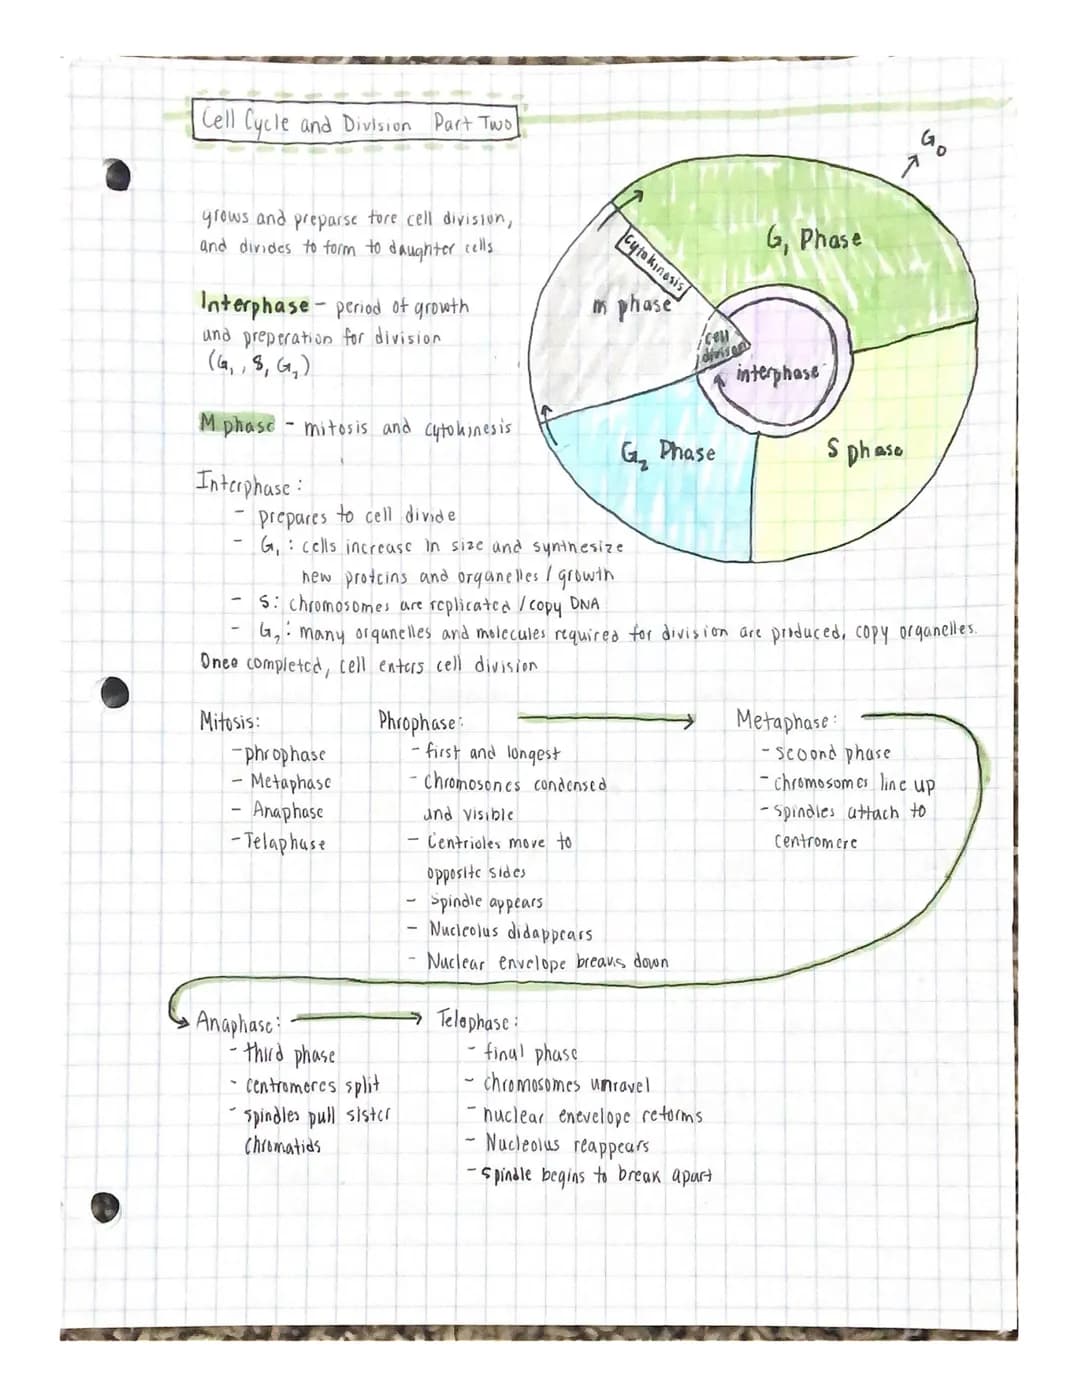 Cell Cycle and Division Part Two
G₀
grows and preparse fore cell division,
and divides to form to daughter cells
G₁ Phase
cytokinesis
m phase
cell
divison
interphase
G₂ Phase
S phase
Interphase - period of growth
and preperation for division
(G₁, S, G₂)
M phase - mitosis and cytokinesis
Interphase:
- prepares to cell divide
- G₁: cells increase in size and synthesize
new proteins and organelles / growth
- S: chromosomes are replicated / copy DNA
- G₂: many organelles and molecules required for division are produced, copy organelles.
Once completed, cell enters cell division
Mitosis:
- phrophase
- Metaphase
- Anaphase
- Telaphase
Phrophase:
- first and longest
- Chromosones condensed
and visible
- Centrioles move to
opposite sides
- Spindle appears
- Nucleolus didappears
- Nuclear envelope breaks down
Metaphase:
- second phase
- chromosomes line up
- Spindles attach to
centromere
Anaphase:
- third phase
- centromeres split
- spindles pull sister
Chromatids
Telophase:
- final phase
- chromosomes unravel
- nuclear enevelope reforms
- Nucleolus reappears
- Spindle begins to break apart